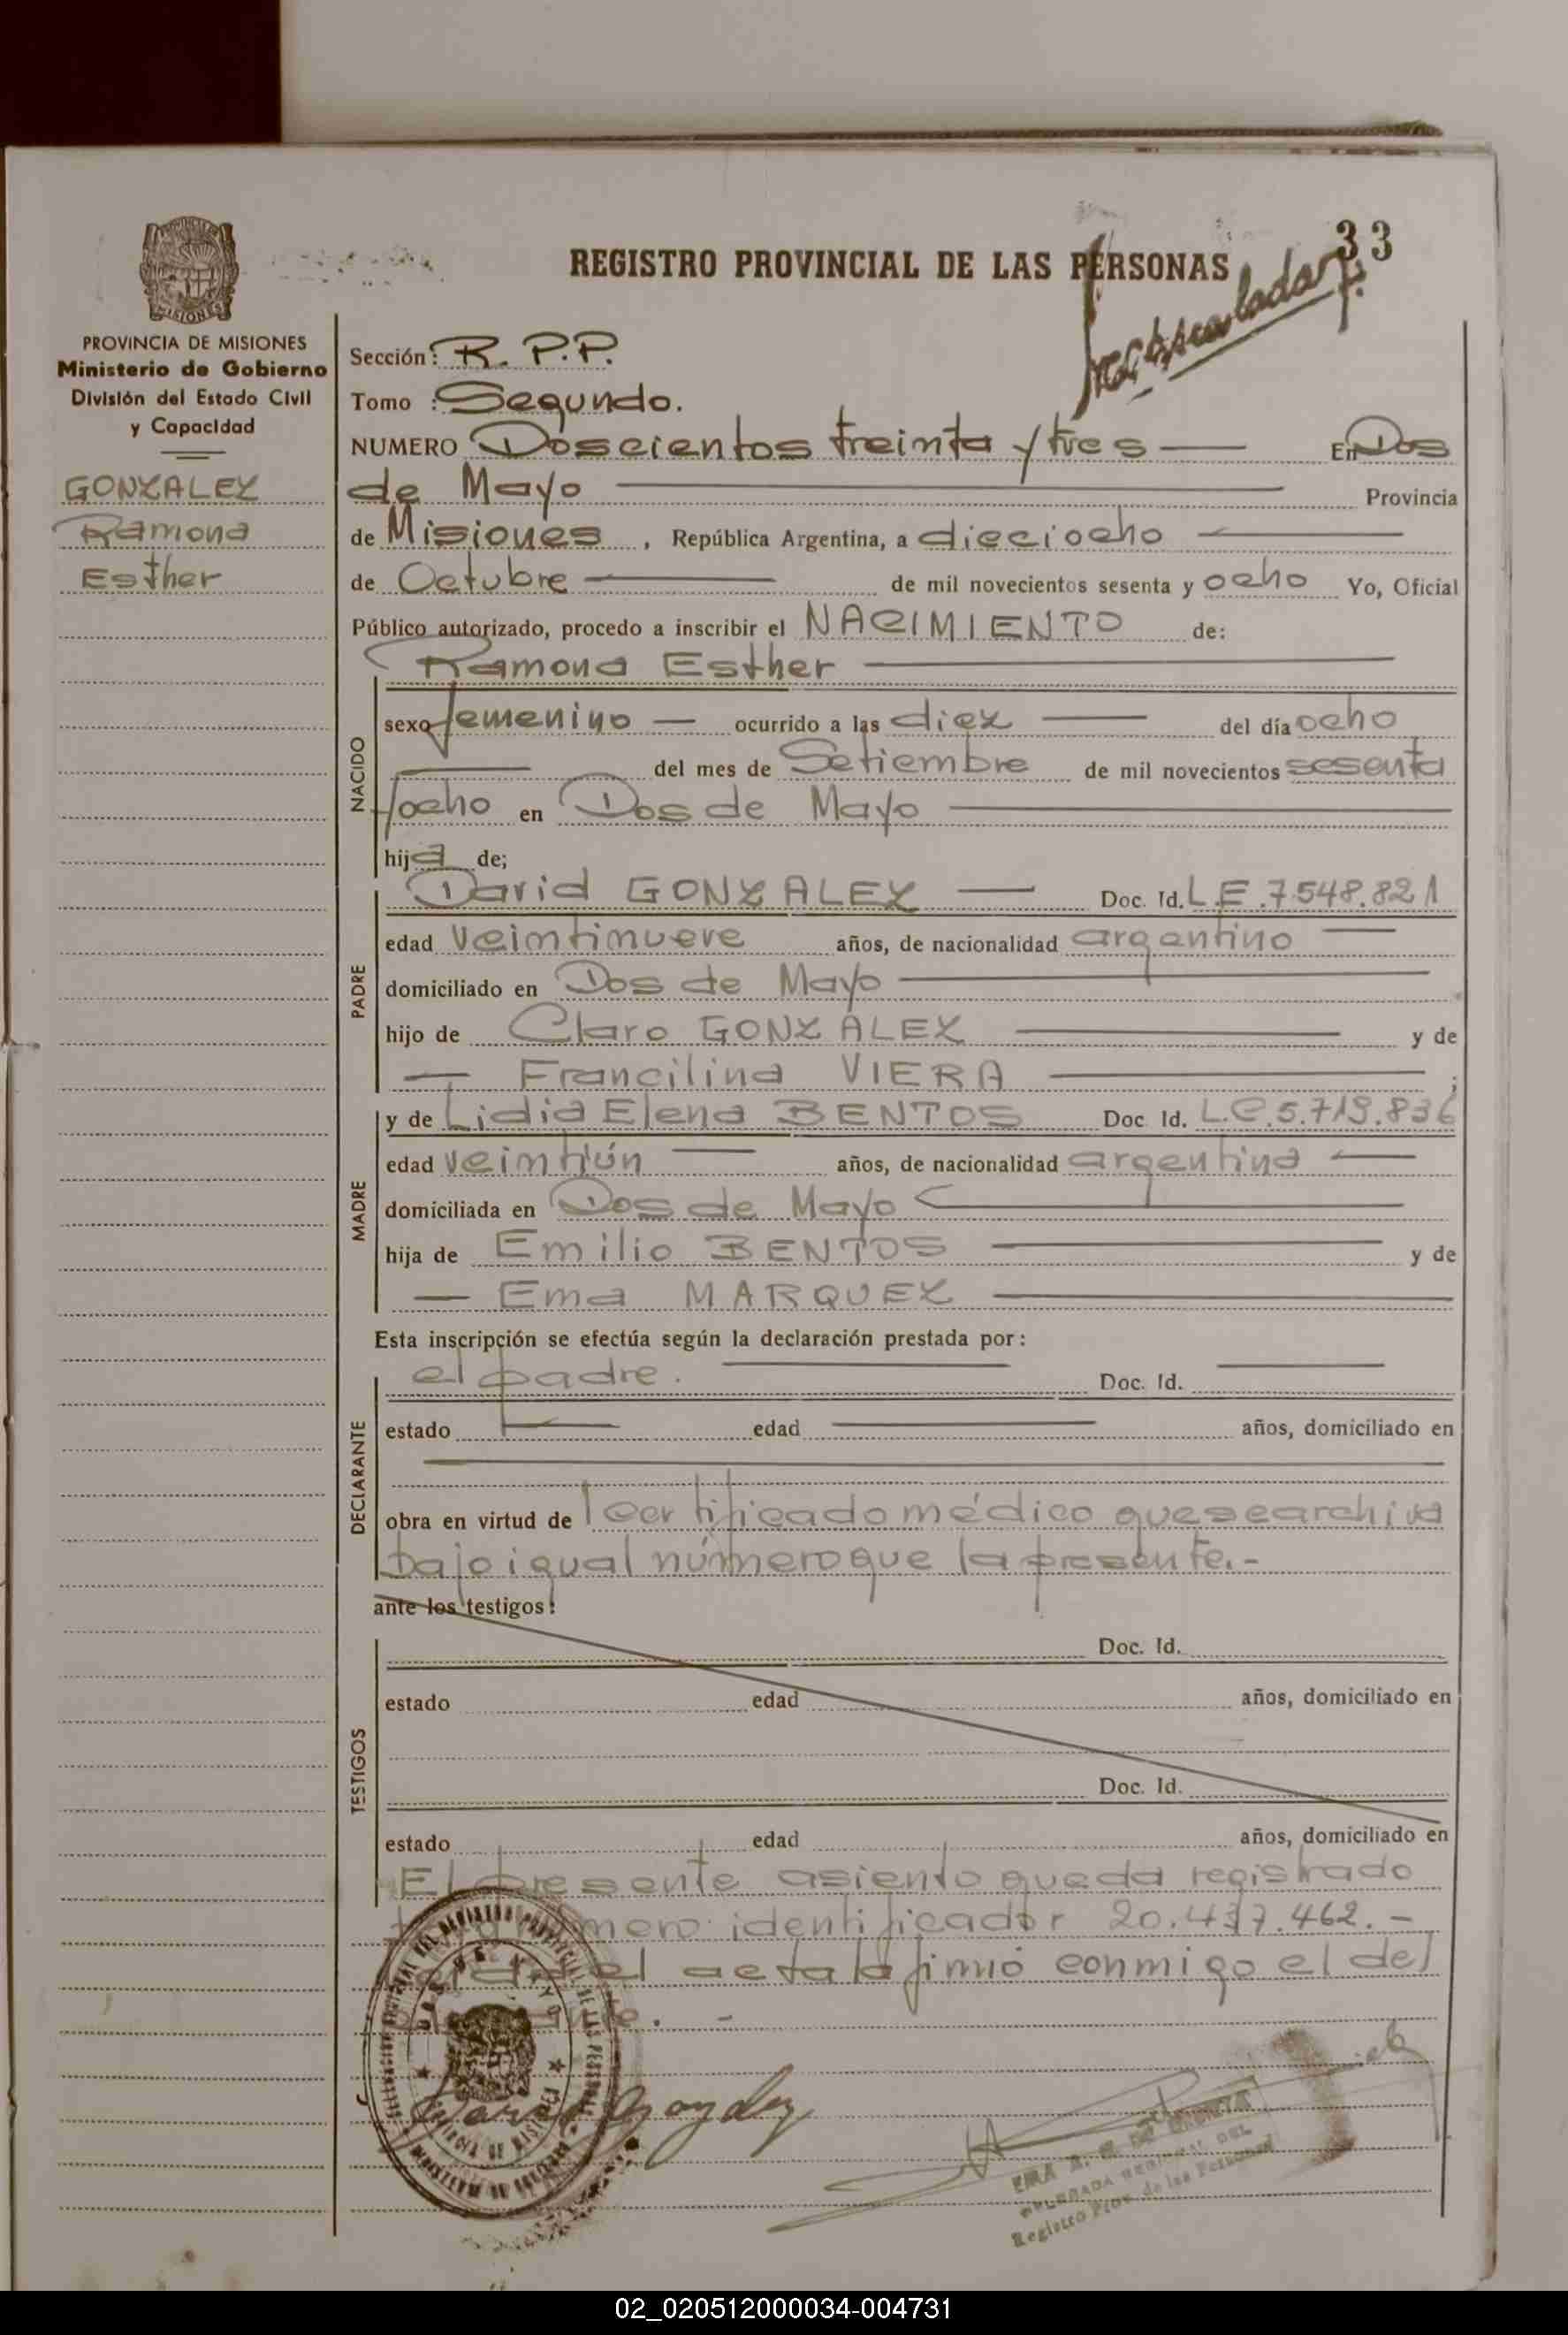 33
REGISTRO PROVINCIAL DE LAS PERSONAS
PROVINCIA DE MISIONES
Ministerio de Gobierno
División del Estado Civil
y Capacidad
GONZALEZ
Ramona
Esther
Sección: R. P.P.
Tomo : Segundo.
NUMERO Doscientos treinta y tres — En Dos
de Mayo — Provincia
de Misiones, República Argentina, a dieciocho —
de Octubre — de mil novecientos sesenta y ocho Yo, Oficial
Público autorizado, procedo a inscribir el NACIMIENTO de:
Ramona Esther —
NACIDO
sexo femenino — ocurrido a las diez — del día ocho
— del mes de Setiembre de mil novecientos sesenta
y ocho en Dos de Mayo —
hija de;
PADRE
David GONZALEZ — Doc. Id. L.E.7.548.821
edad veintinueve años, de nacionalidad argentino —
domiciliado en Dos de Mayo —
hijo de Claro GONZALEZ — y de
— Francilina VIERA — ;
MADRE
y de Lidia Elena BENTOS Doc. Id. L.C.5.719.836
edad veintiún — años, de nacionalidad argentina —
domiciliada en Dos de Mayo —
hija de Emilio BENTOS — y de
— Ema MARQUEZ —
Esta inscripción se efectúa según la declaración prestada por:
DECLARANTE
el padre. — Doc. Id. —
estado — edad — años, domiciliado en
—
obra en virtud de l certificado médico que se archiva
bajo igual número que la presente.-
ante los testigos:
TESTIGOS
Doc. Id.
estado edad años, domiciliado en
Doc. Id.
estado edad años, domiciliado en
El presente asiento queda registrado
identificador 20.437.462.-
el acta la firmó conmigo el de
. -
DELEGADA REGIONAL DEL
Registro Prov. de las Personas
02_020512000034-004731